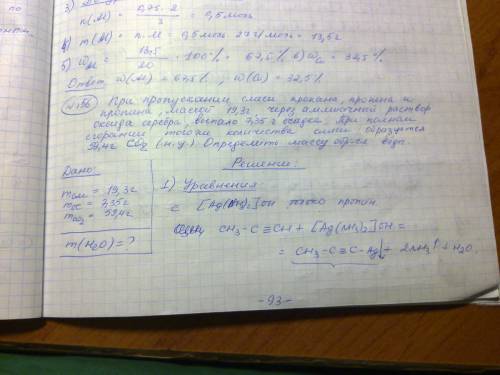 по
3)
n(Al) = 0,75 · 2 / 3 = 0,5 моль
4) m(Al) = n · M = 0,5 моль · 27 г/моль = 13,5 г
5) ω Al = 13,5 / 20 · 100% = 67,5% 6) ω Cu = 32,5%
Ответ ω(Al) = 67,5% ; ω(Cu) = 32,5%
При пропускании смеси пропана, пропена и
пропина, массой 19,3 г через аммиачный раствор
оксида серебра, выпало 7,35 г осадка. При полном
сгорании того же количества смеси образуется
59,4 г CO2 (н.у.) Определить массу воды
Дано:
Решение:
m см = 19,3 г
m ос = 7,35 г
m CO2 = 59,4 г
m(H2O) = ?
1) Уравнения
с [Ag(NH3)2]OH только пропин.
CH3-C≡CH + [Ag(NH3)2]OH =
= CH3-C≡C-Ag↓ + 2NH3↑ + H2O.
-93-